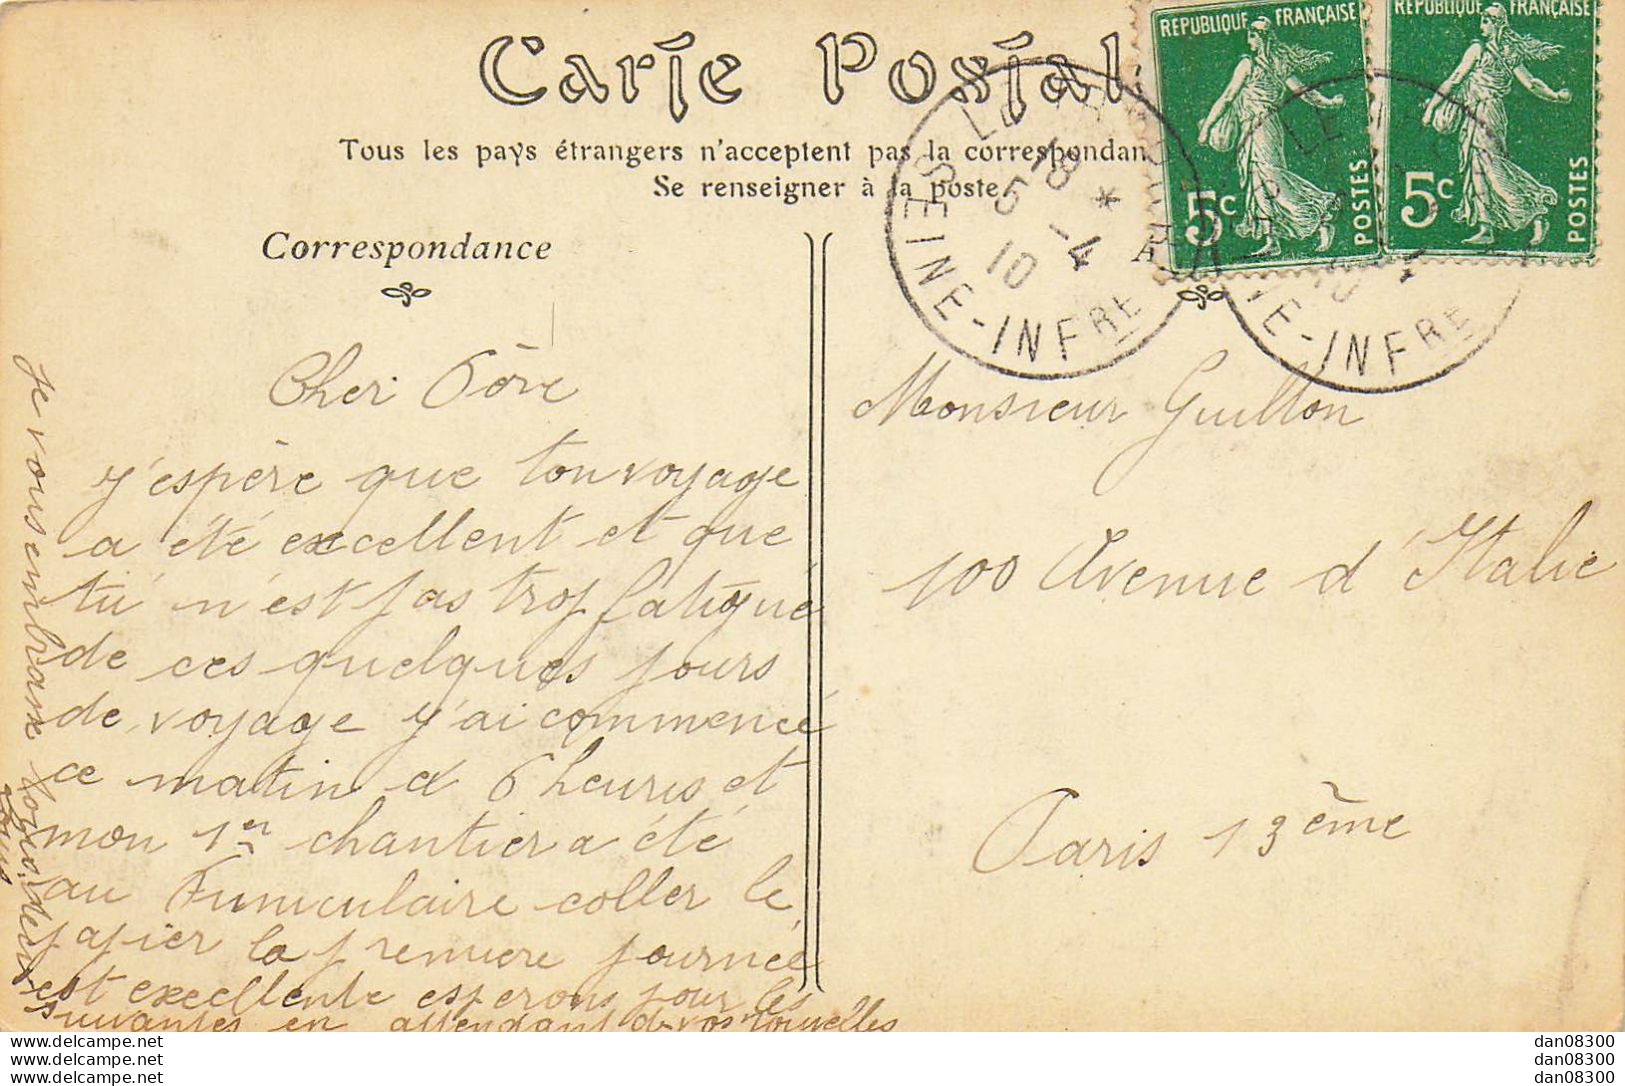 Carte Postale
Tous les pays étrangers n'acceptent pas la correspondan
Se renseigner à la poste
Correspondance
RÉPUBLIQUE FRANÇAISE
5c
POSTES
RÉPUBLIQUE FRANÇAISE
5c
POSTES
LE
18
5 -4
10
SEINE-INFRE
LE
10
NE-INFRE
Cher Père
J'espère que ton voyage
a été excellent et que
tu n'est pas trop fatigué
de ces quelques jours
de voyage j'ai commencé
ce matin a 6 heures et
mon 1er chantier a été
au Funiculaire coller le
papier la première journée
est excellente esperons pour les
suivantes en attendant de vos nouvelles
Je vous embrasse tous
Monsieur Guillon
100 Avenue d'Italie
Paris 13ème
www.delcampe.net
www.delcampe.net
www.delcampe.net
dan08300
dan08300
dan08300